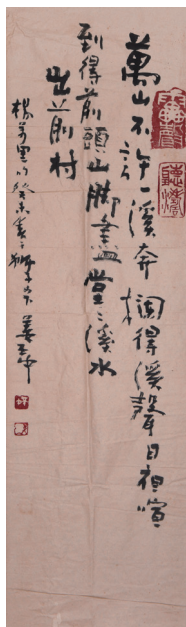 萬山不許一溪奔攔得溪聲日夜喧
到得前頭山脚盡堂堂溪水
出前村
楊萬里句癸未春